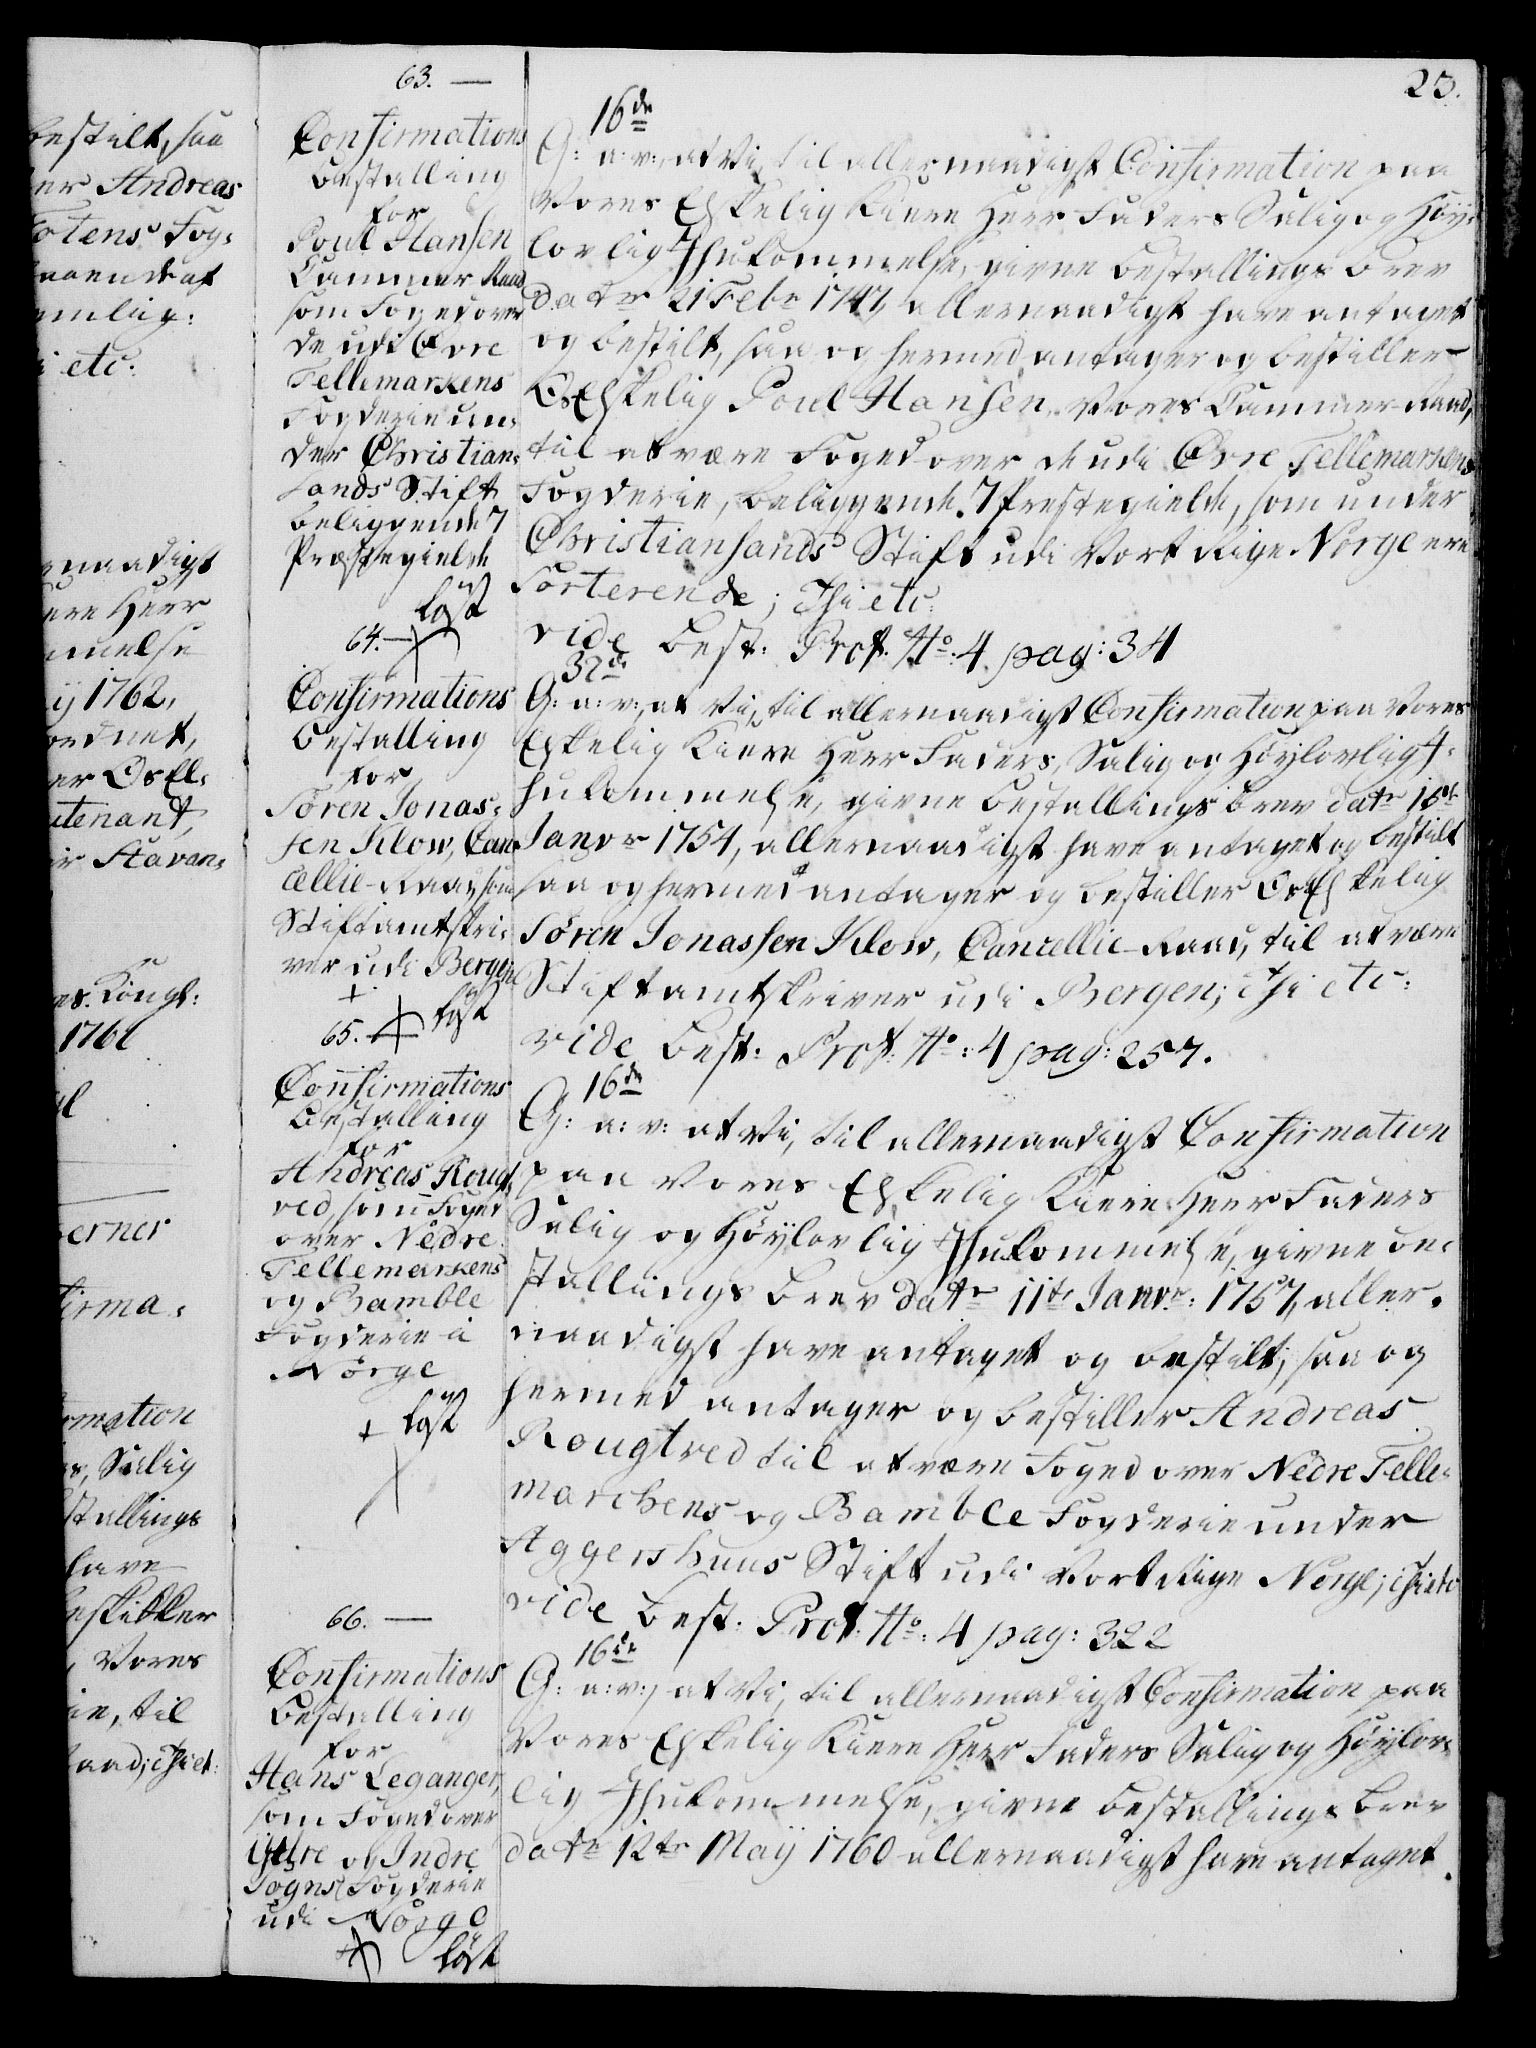 23.
bestilt, saa
er Andreas
Totens Fog-
emlig:
etc:
rnaadigst
ere Herr
mmelse
ij 1762,
ordnet,
er Os El-
utenant,
ir Stavan-
es. Kongl:
1761
erner
firma-
rmation
Salig
stallings
have
bestiller
Vores
ie, til
raad; thi et:
63. —
Confirmations
Bestalling
for
Poul Hansen
Cammer Raad
som Foged over
de udi Øvre
Tellemarkens
Fogderie un-
der Christian-
sands Stift
beliggende 7
Præstegielde
løst
64. —
Confirmations
Bestalling
for
Søren Jonas-
sen Klow, Can-
cellie-Raad, som
Stiftamtskri-
ver udi Bergen
løst
65. —
Confirmations
Bestalling
for
Andreas Rougt-
ved, som Foged
over Nedre
Tellemarkens
og Bamble
Fogderie i
Norge
løst
66. —
Confirmations
Bestalling
for
Hans Leganger,
som Foged over
Ijttre og Indre
Sogns Fogderie
udi Norge
løst
16de
G: a: v:, at Vi, til allernaadigst Confirmation paa
Vores Elskelig Kiere Herr Faders Salig og Høy-
lovlig Ihukommelse, givne Bestallings Brev
datr 21 Febr 1747, allernaadigst have antaget
og bestilt, saa og hermed antager og bestiller
Os Elskelig Poul Hansen, Vores Cammer-Raad,
til at være Foged over de udi Øvre Tellemarkens
Fogderie, beliggende 7 Prestegielde, som under
Christiansands Stift udi Vort Rige Norge ere
Sorterende; Thi etc:
vide Best: Prot: No: 4. pag: 34
32de
G: a: v:, at Vi, til allernaadigst Confirmation paa Vores
Elskelig Kiere Herr Faders, Salig og Høylovlig I-
hukommelse, givne Bestallings Brev datr 18de
Janvr 1754, allernaadigst have antaget og bestilt
saa og hermed antager og bestiller Os Elskelig
Søren Jonassen Klow, Cancellie-Raad, til at være
Stiftamtskriver udi Bergen; thi etc:
vide Best: Prot: No: 4 pag: 257.
16de
G: a: v: at Vi, til allernaadigst Confirmation
paa Vores Elskelig Kiere Herr Faders
Salig og Høylovlig Ihukommelse, givne Be-
stallings Brev datr 11te Janvr: 1757, aller-
naadigst have antaget og bestilt, saa og
hermed antager og bestiller Andreas
Rougtved til at være Foged over Nedre Telle-
marchens og Bamble Fogderie under
Aggershuus Stift udi Vort Rige Norge; thi etc
vide Best: Prot: No: 4 pag: 322
16de
G: a: v:, at Vi, til allernaadigst Confirmation paa
Vores Elskelig Kiere Herr Faders Salig og Høylov-
lig Ihukommelse, givne Bestallings Brev
datr 12te Maij 1760 allernaadigst have antaget